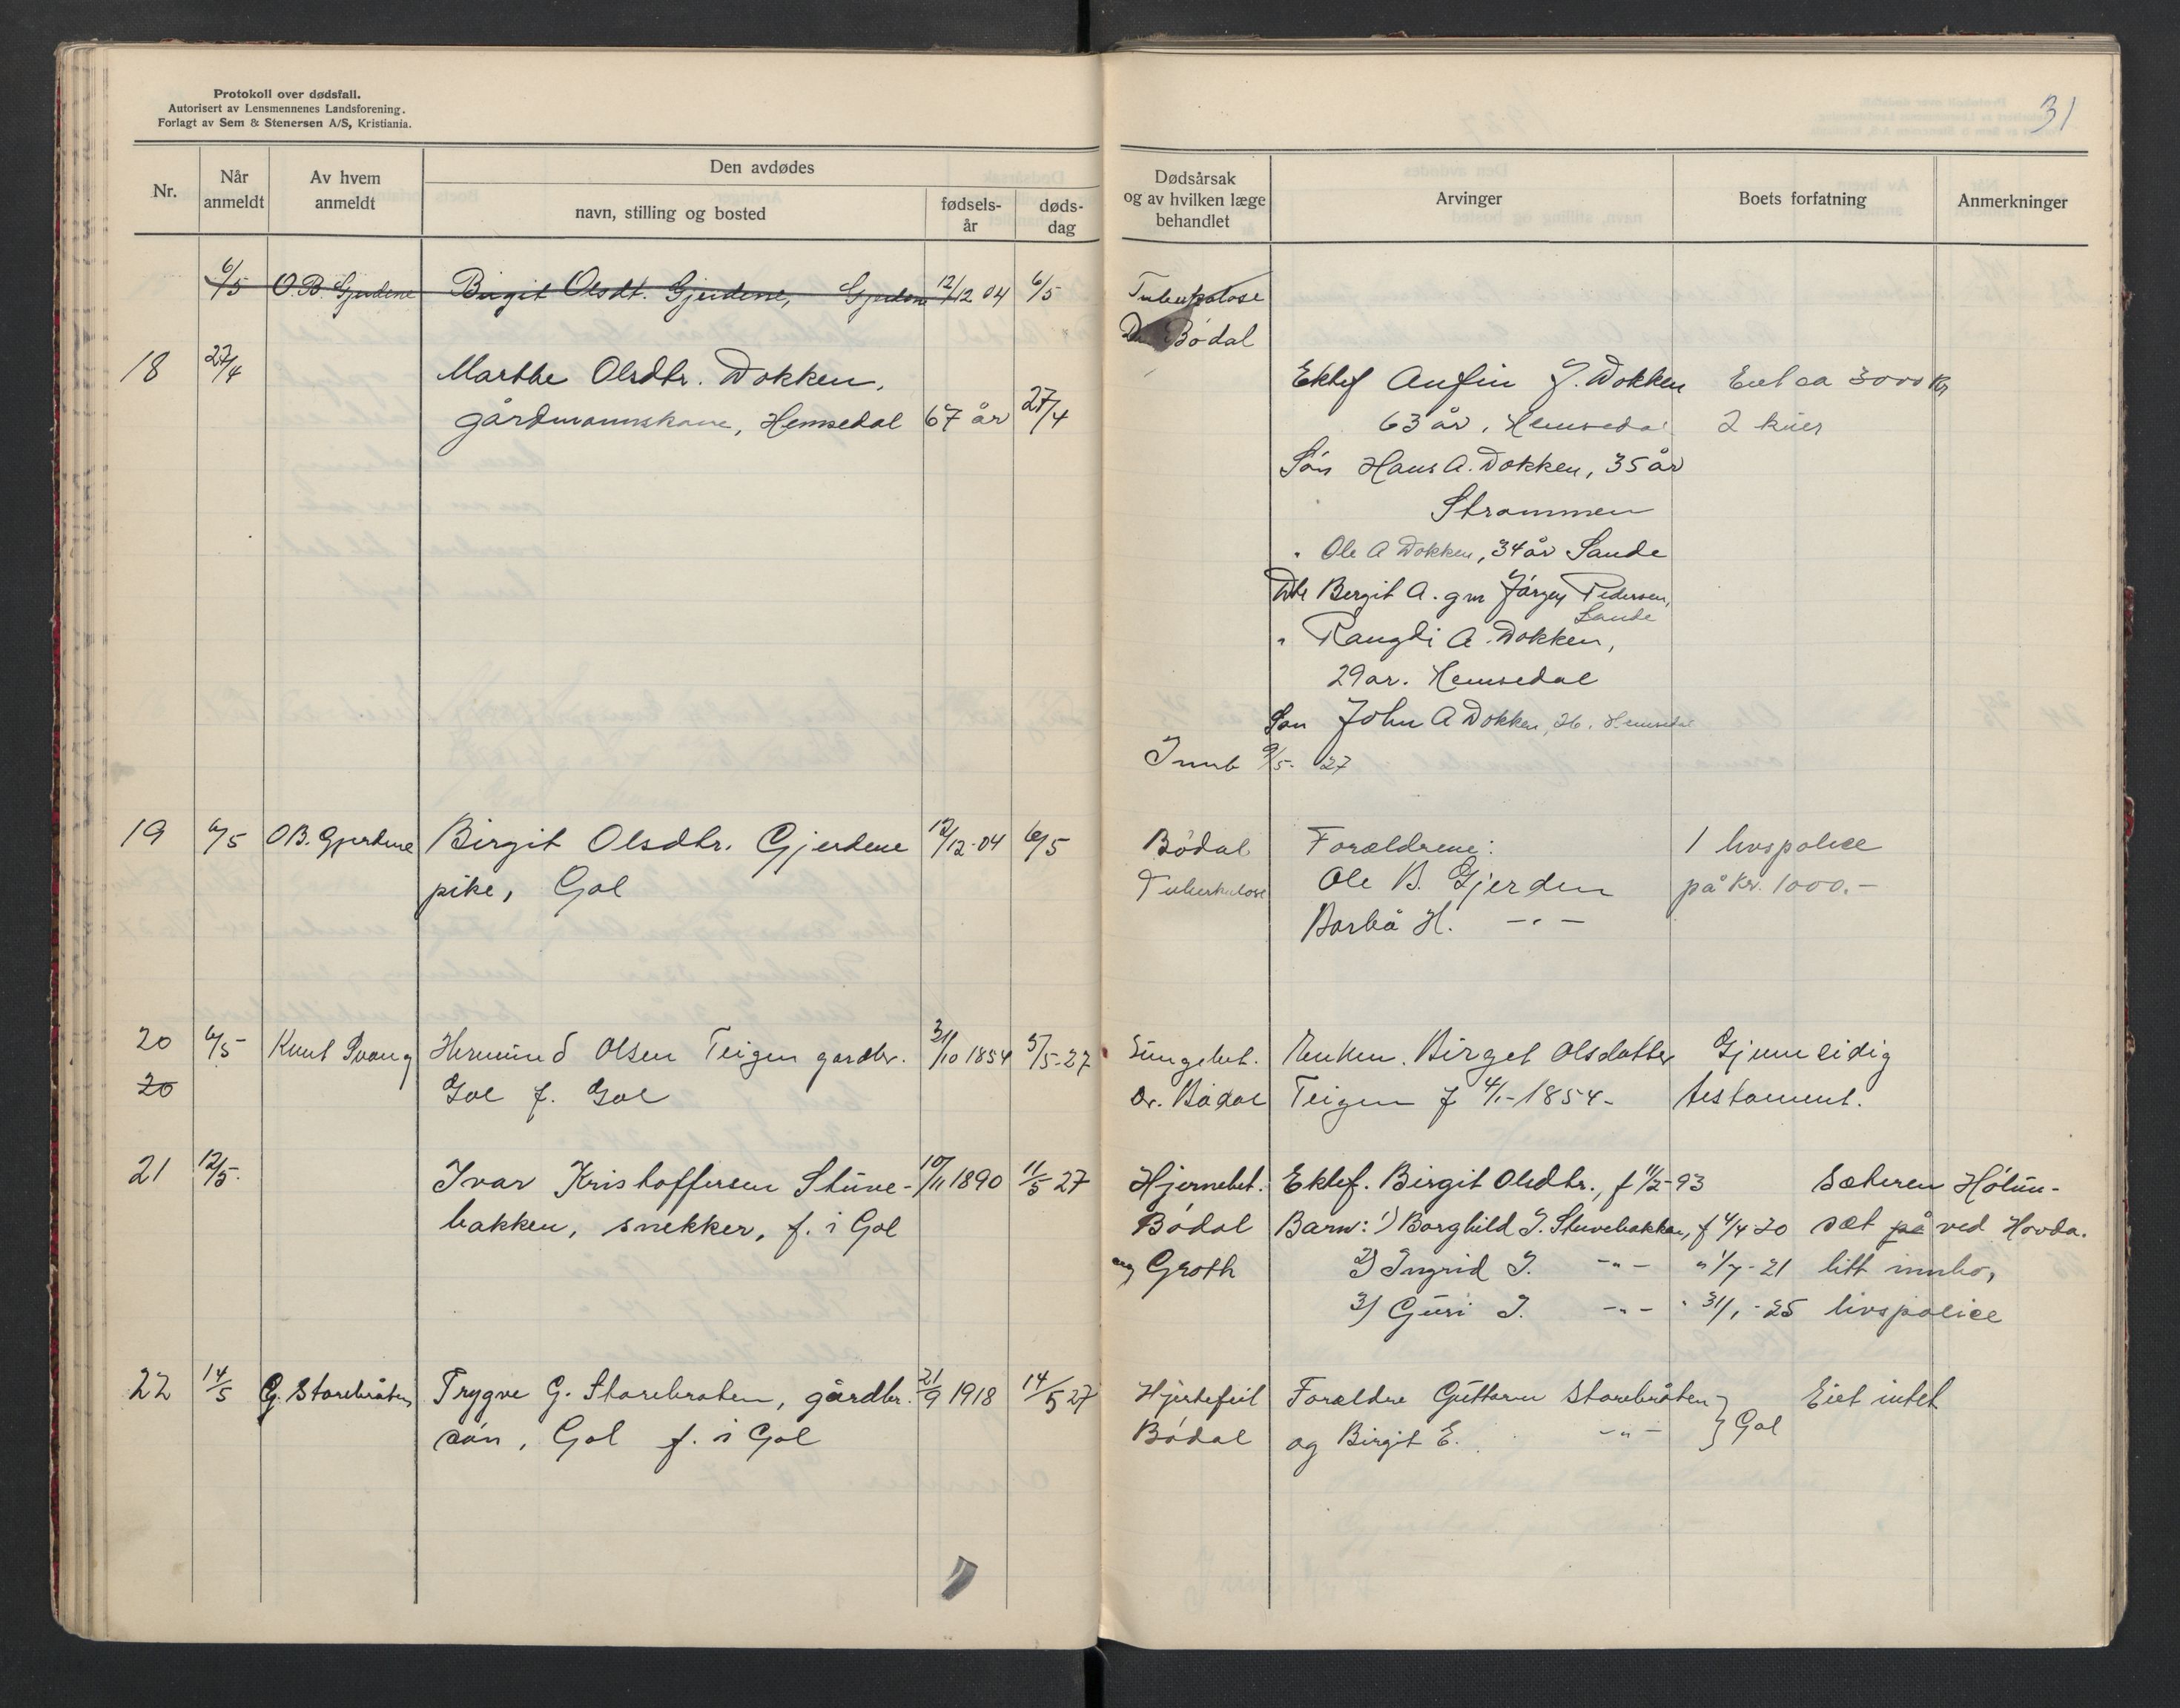 Protokoll over dødsfall.
Autorisert av Lensmennenes Landsforening.
Forlagt av Sem & Stenersen A/S, Kristiania.
31
Nr. Når anmeldt Av hvem anmeldt Den avdødes navn, stilling og bosted fødsels-år døds-dag Dødsårsak og av hvilken læge behandlet Arvinger Boets forfatning Anmerkninger
6/5 O.B. Gjerdene Birgit Olsdt. Gjerdene, 12/12 04 6/5 Tuberkulose
Dr Bødal
18 27/4 Marthe Olsdtr. Dokken, Ektef Anfin J. Dokken Eiet ca 3000 Kr
gårdmannskone, Hemsedal 67 år 27/4 63 år, Hemsedal 2 kuer
Søn Hans A. Dokken, 35 år
Strømmen
" Ole A Dokken, 34 år Sande
Dtr Bergit A. gm Jørgen Pedersen,
Sande
" Rangdi A. Dokken,
29 år. Hemsedal
Søn John A Dokken, 26, Hemsedal
Innb 9/5- 27
19 6/5 O B. Gjerdene Birgit Olsdtr. Gjerdene 12/12-04 6/5 Bødal Forældrene: 1 livspolice
pike, Gol Tuberkulose Ole B. Gjerden på Kr. 1000.-
Barbå H. -"-
20 6/5 Knut Svang Hermund Olsen Teigen gardbr. 31/10 1854 5/5-27 Lungebet. Enken. Birget Olsdatter Gjennsidig
20 Gol f. Gol Dr. Bødal Teigen f 4/1-1854- testament.
21 12/5- Ivar Kristoffersen Stuve- 10/11 1890 11/5 27 Hjernebet. Ektef. Birgit Olsdtr., f 11/2-93 Sæteren Hólun-
bakken, snekker, f. i Gol Bødal Barn: 1) Borghild I. Stuvebakken, f 4/4-20 sæt på ved Hovda.
og Groth 2) Ingrid I. -"- " 1/7-21 litt innbo,
3) Guri I. -"- " 31/1-25 livspolice
22 14/5 G. Storebråten Trygve G. Storebråten, gårdbr. 21/9 1918 14/5 27 Hjertefeil Forældre Guttorm Storebråten Eiet intet
søn, Gol f. i Gol Bødal og Birgit E. -"- } Gol